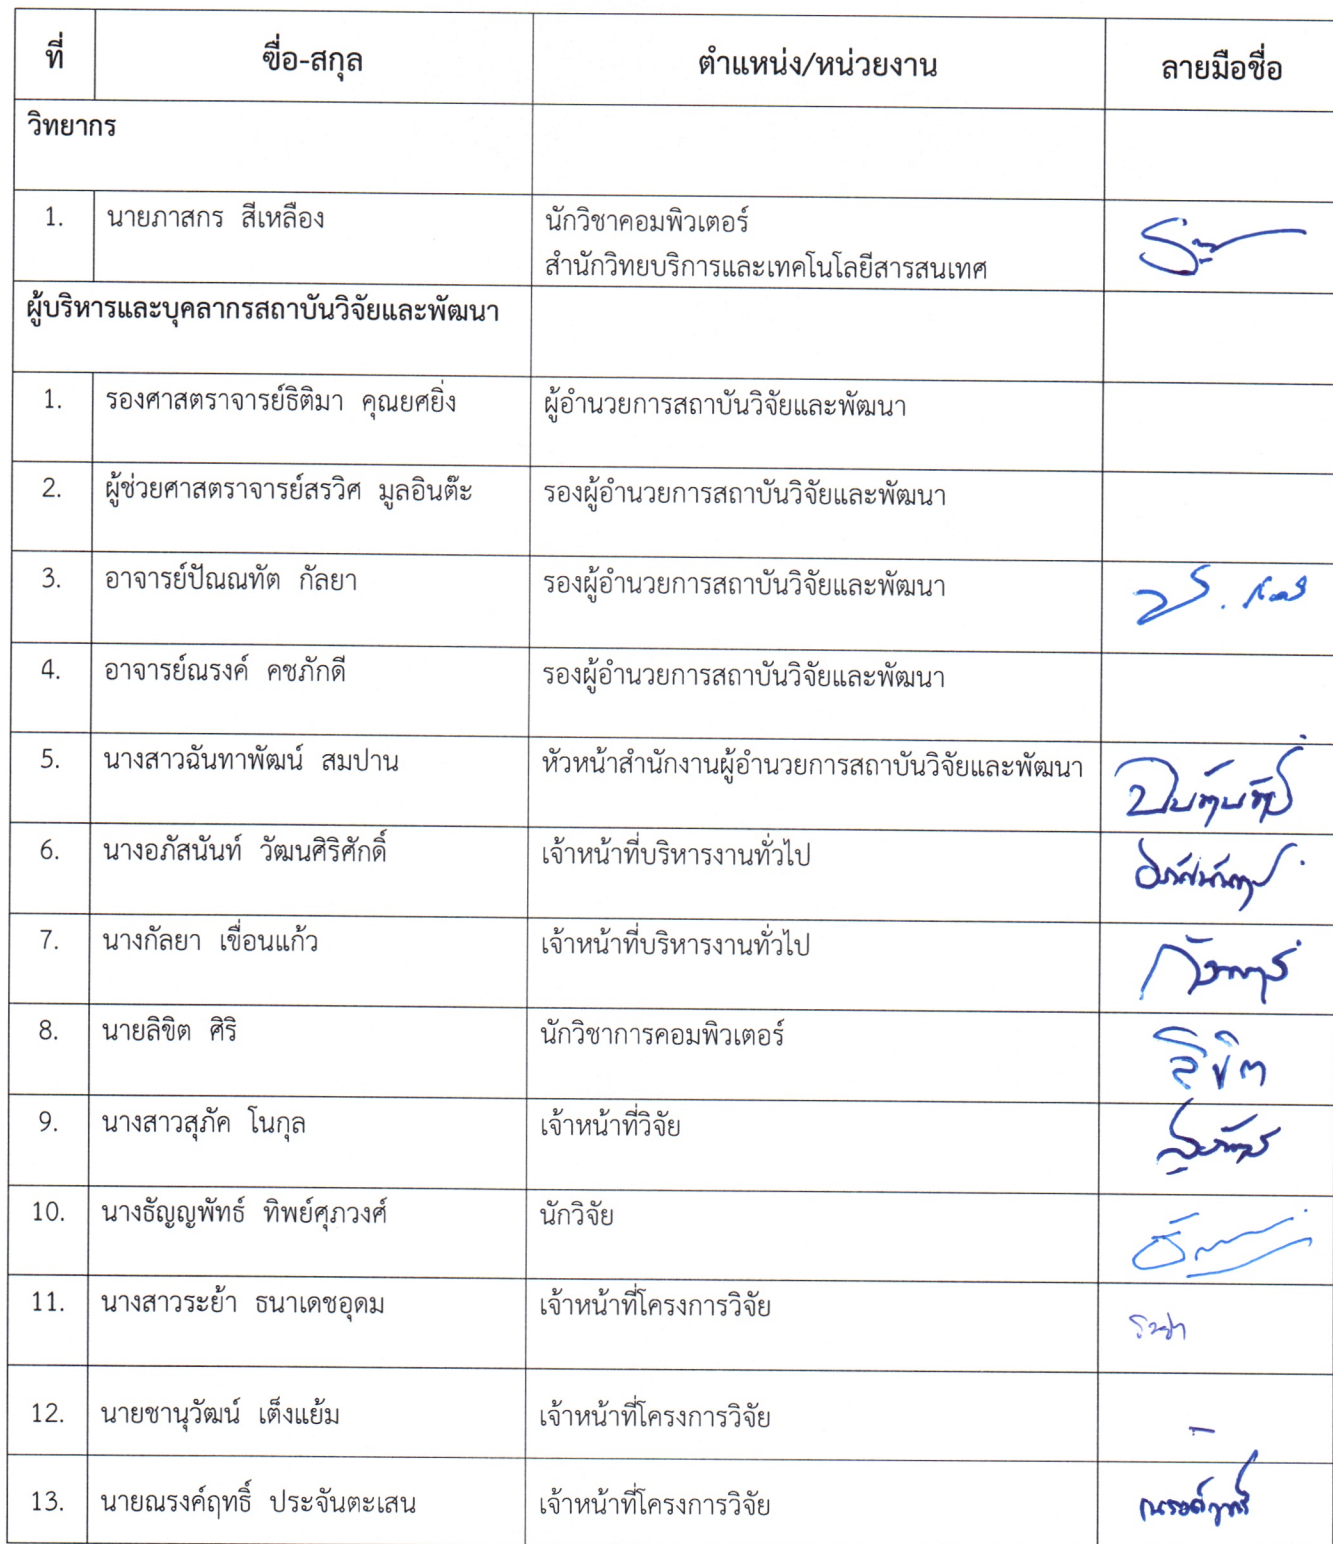 ที่ ชื่อ-สกุล ตำแหน่ง/หน่วยงาน ลายมือชื่อ
วิทยากร
1. นายภาสกร สีเหลือง นักวิชาคอมพิวเตอร์
สำนักวิทยบริการและเทคโนโลยีสารสนเทศ
ผู้บริหารและบุคลากรสถาบันวิจัยและพัฒนา
1. รองศาสตราจารย์ธิติมา คุณยศยิ่ง ผู้อำนวยการสถาบันวิจัยและพัฒนา
2. ผู้ช่วยศาสตราจารย์สรวิศ มูลอินต๊ะ รองผู้อำนวยการสถาบันวิจัยและพัฒนา
3. อาจารย์ปัณณทัต กัลยา รองผู้อำนวยการสถาบันวิจัยและพัฒนา
4. อาจารย์ณรงค์ คชภักดี รองผู้อำนวยการสถาบันวิจัยและพัฒนา
5. นางสาวฉันทาพัฒน์ สมปาน หัวหน้าสำนักงานผู้อำนวยการสถาบันวิจัยและพัฒนา
6. นางอภัสนันท์ วัฒนศิริศักดิ์ เจ้าหน้าที่บริหารงานทั่วไป อภัสนันท์
7. นางกัลยา เขื่อนแก้ว เจ้าหน้าที่บริหารงานทั่วไป
8. นายลิขิต ศิริ นักวิชาการคอมพิวเตอร์ ลิขิต
9. นางสาวสุภัค โนกุล เจ้าหน้าที่วิจัย
10. นางธัญญพัทธ์ ทิพย์ศุภวงศ์ นักวิจัย
11. นางสาวระย้า ธนาเดชอุดม เจ้าหน้าที่โครงการวิจัย ระย้า
12. นายชานุวัฒน์ เต็งแย้ม เจ้าหน้าที่โครงการวิจัย
13. นายณรงค์ฤทธิ์ ประจันตะเสน เจ้าหน้าที่โครงการวิจัย ณรงค์ฤทธิ์